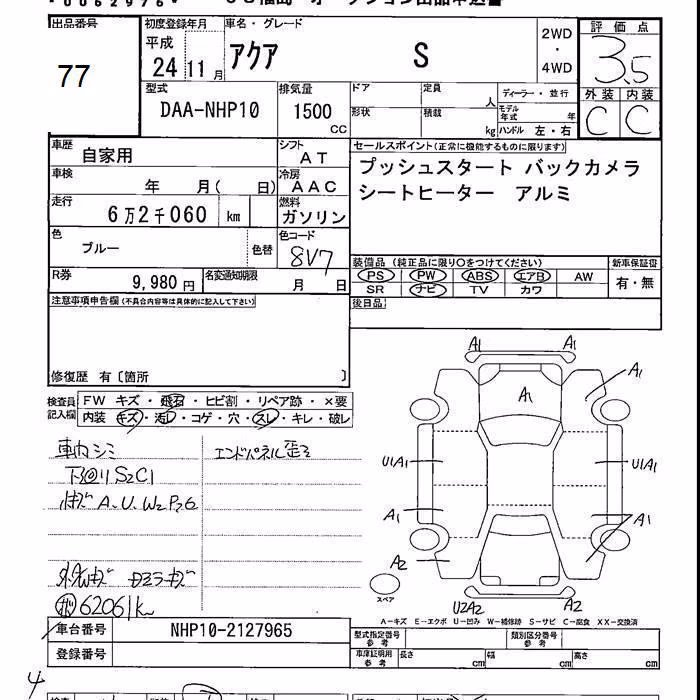 出品番号
77
初度登録年月
平成
24 11月
車名・グレード
アクア S
2WD
・
4WD
評価点
3.5
外装 内装
C C
型式
DAA-NHP10
排気量
1500
CC
ドア
定員
人
形状
積載
kg
ディーラー・並行
モデル年式 年
ハンドル 左・右
車歴
自家用
シフト
AT
車検
年 月( 日)
冷房
AAC
走行
6万2千060 km
燃料
ガソリン
色
ブルー
色替
色コード
8V7
R券
9,980円
名変通知期限
月 日
セールスポイント(正常に機能するものに限ります)
プッシュスタート バックカメラ
シートヒーター アルミ
装備品(純正品に限り○をつけてください)
PS PW ABS エアB AW
SR ナビ TV カワ
新車保証書
有・無
後日品
注意事項申告欄(不具合内容等は具体的に記入して下さい)
修復歴 有〔箇所 〕
検査員
記入欄
FW キズ・飛石・ヒビ割・リペア跡・×要
内装 キズ・汚レ・コゲ・穴・スレ・キレ・破レ
下回りS2C1
A.U.W2P26
エンドパネル歪ミ
62061k
A1
A1
A1
A1
U1A1
U1A1
A1
A1
A2
スペア
U2A2
A2
A-キズ E-エクボ U-凹み W-補修跡 S-サビ C-腐食 XX-交換済
車台番号
NHP10-2127965
登録番号
型式指定番号
参考
類別区分番号
参考
車庫証明用
参考
長さ cm
幅 cm
高さ cm